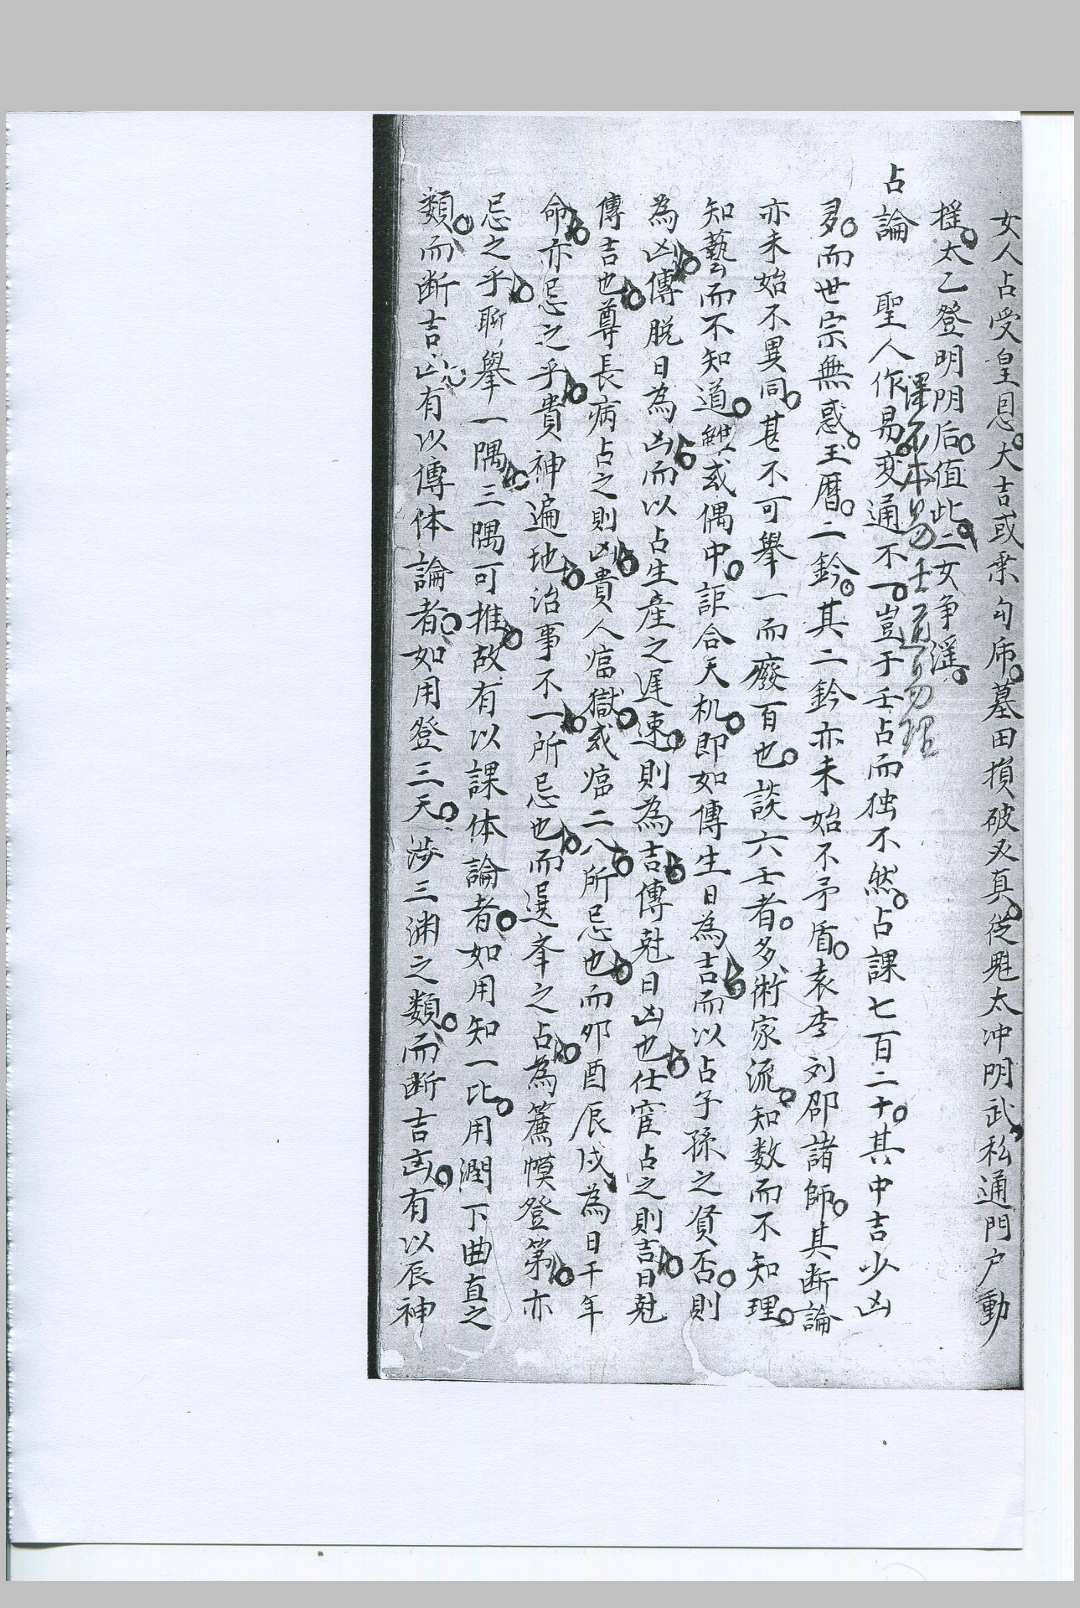 女人占受皇恩。大吉或乗勾帍。墓田損破及真。從魁太冲明武。私通門户動
揺。太乙登明陰后。值此二女争淫。
占論　聖人作易变通不一。豈于壬占而独不然。占課七百二十。其中吉少凶
多。而世宗無惑。玉曆。二鈐。其二鈐亦未始不矛盾。袁李刘邵諸師。其断論
亦未始不異同。甚不可舉一而廢百也。談六壬者。多術家流。知数而不知理。
知藝而不知道。雖或偶中。詎合天机。即如傳生日為吉。而以占子孫之貧否。則
為凶。傳脱日為凶。而以占生産之遅速。則為吉。傳尅日凶也。仕宦占之則吉。日尅
傳吉也。尊長病占之則凶。貴人痼獄。或痼二八所忌也。而夘酉辰戌為日干年
命。亦忌之乎。貴神遍地。治事不一。所忌也。而選峯之占。為簾幙登第。亦
忌之乎。聊舉一隅。三隅可推。故有以課体論者。如用知一比。用潤下曲直之
類。而断吉凶。有以傳体論者。如用登三天。涉三渊之類。而断吉凶。有以辰神
課不本易壬有易理